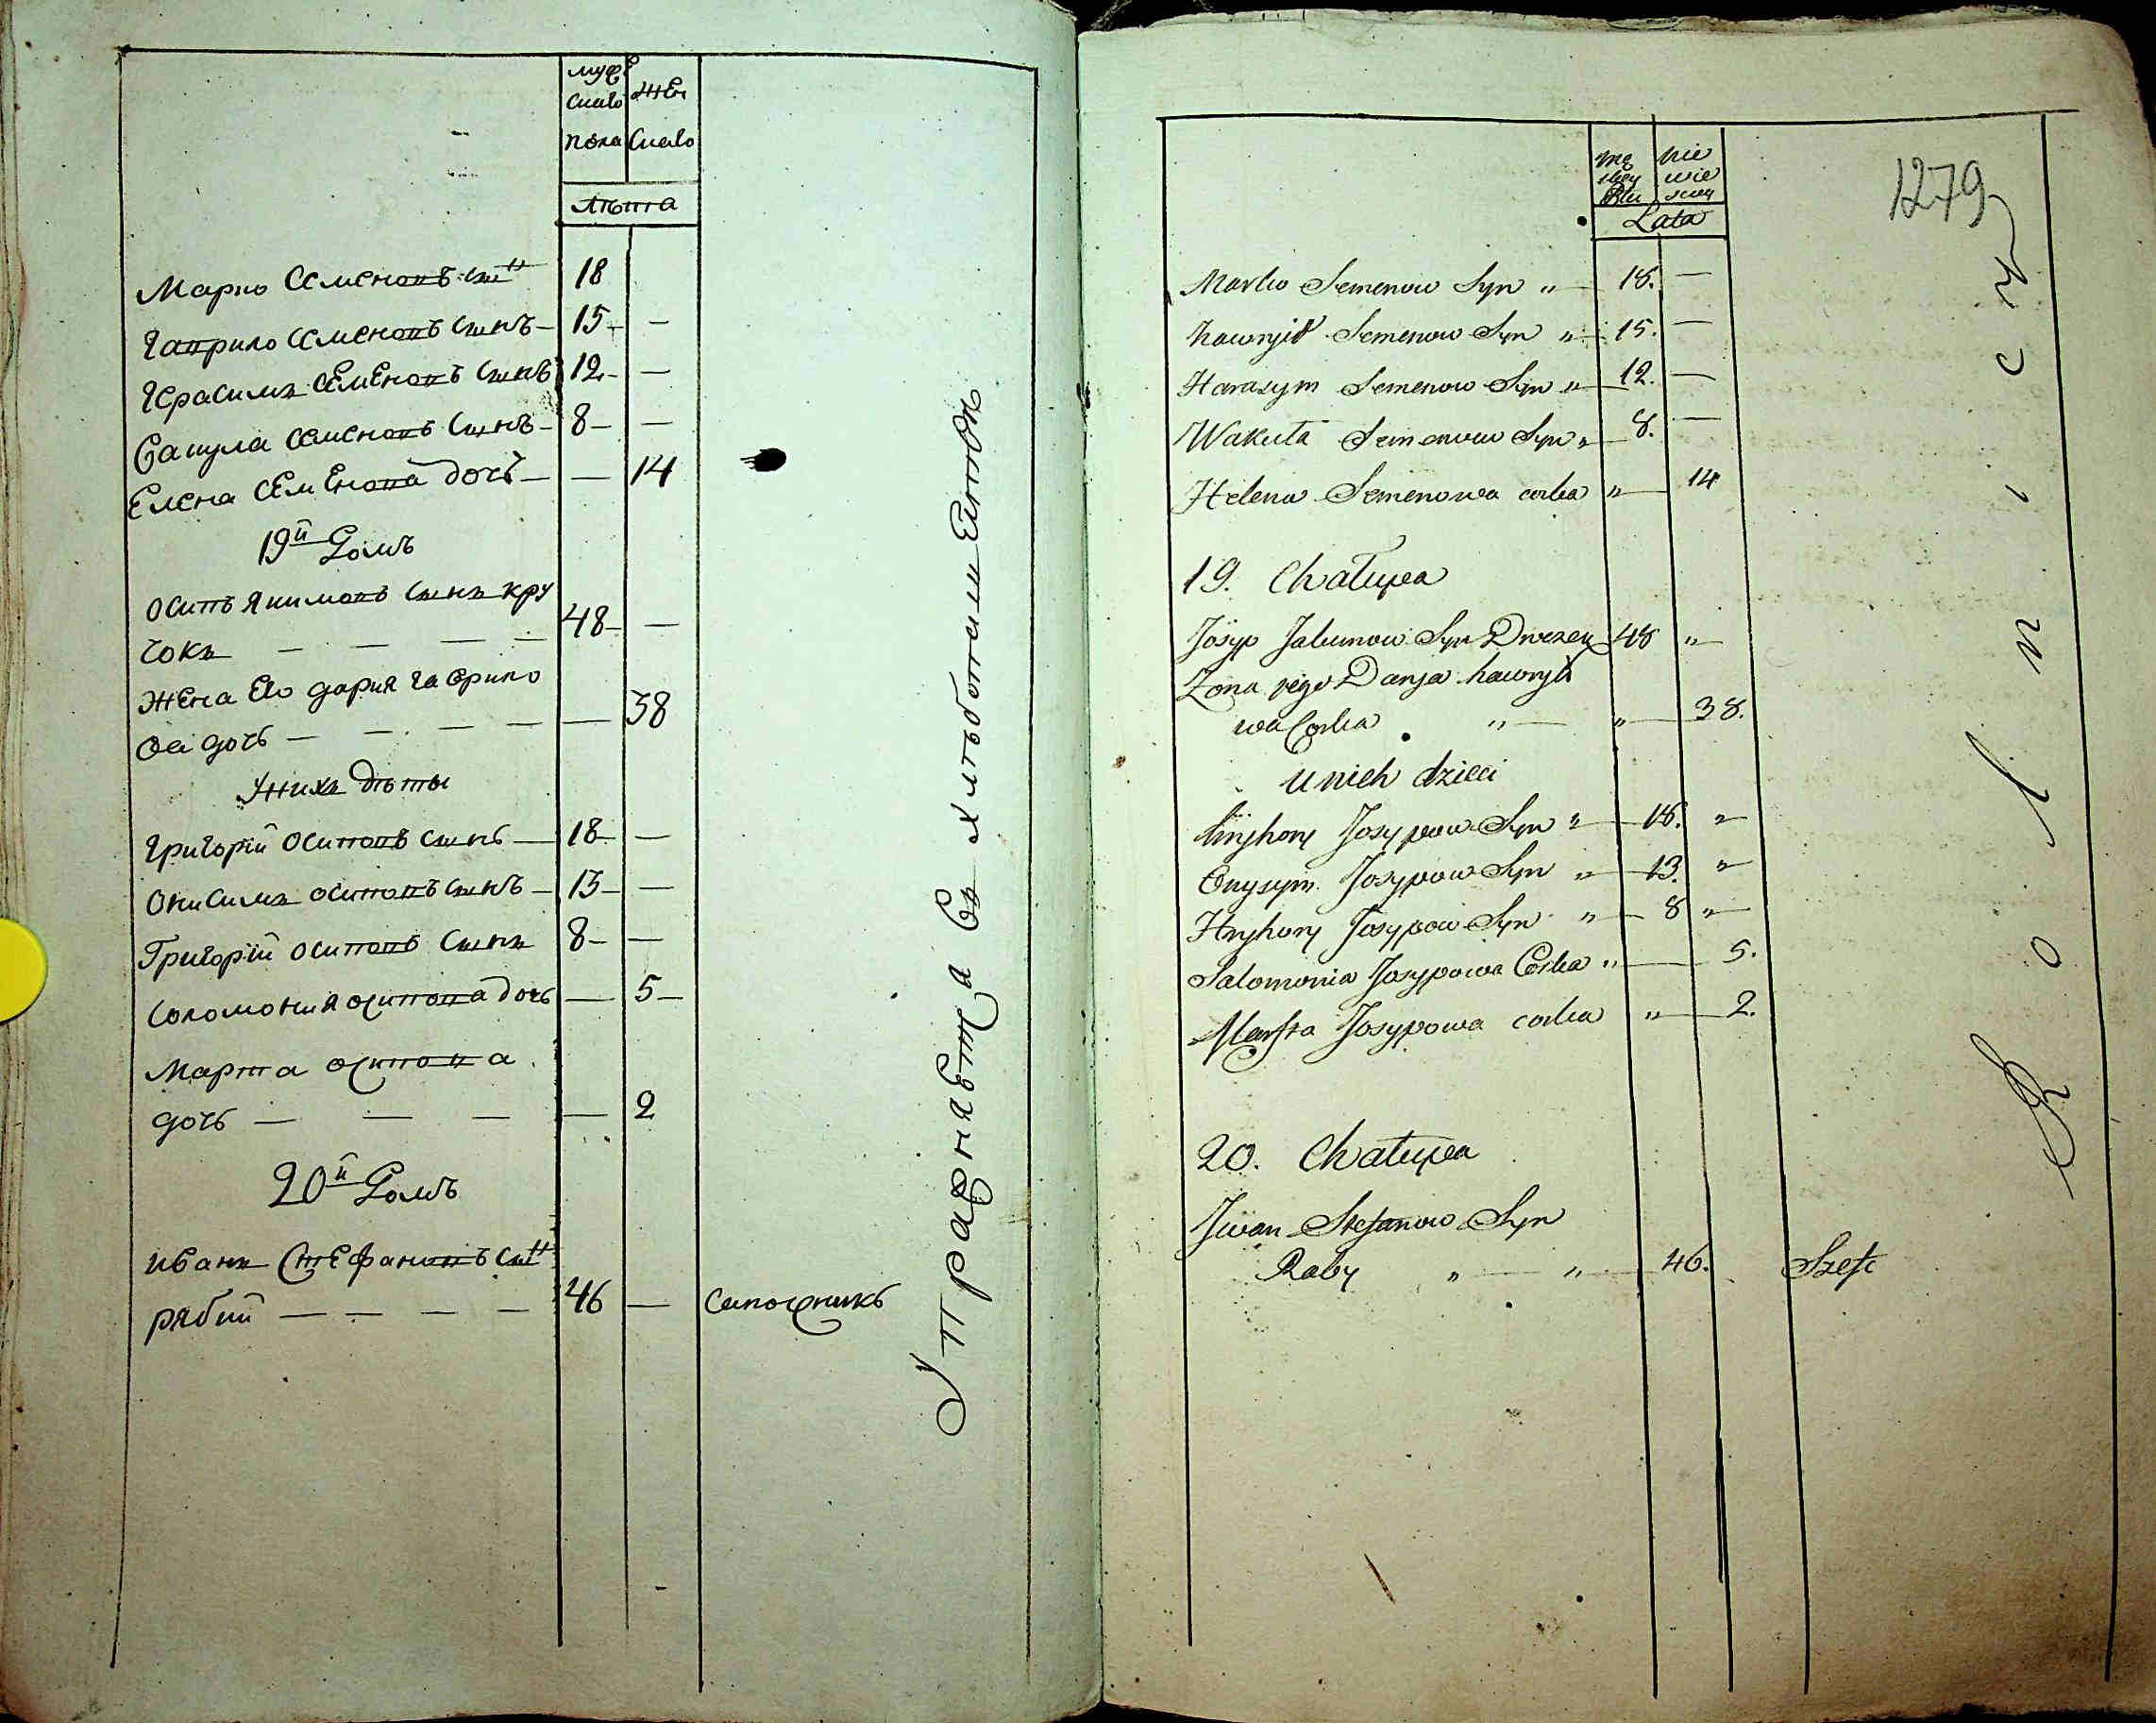 мужескаго пола
женскаго
лѣта
Марко Семеновъ сынъ 18
Гаврило Семеновъ сынъ — 15 — —
Герасимъ Семеновъ сынъ 12 — —
Вакула Семеновъ сынъ — 8 — —
Елена Семенова дочь — — 14
19й Домъ
Осипъ Якимовъ сынъ Кру
чокъ — — — — 48 — —
Жена Его дария гаврило
ва дочь — — — — — 38
У нихъ дѣти
Григорій Осиповъ сынъ — 18 — —
Онисимъ осиповъ сынъ — 13 — —
Григорій осиповъ сынъ 8 — —
Соломония осипова дочь — 5 —
Марта осипова
дочь — — — — 2
20й Домъ
иванъ Стефановъ сынъ
рябий — — — — 46 — сапожникъ
Упражняется въ хлѣбопашестве
1279
męskey płci
niewieskey
Lata
Marko Semenow Syn „ — 18. —
hawryło Semenow Syn „ — 15. —
Harasym Semenow Syn „ — 12. —
Wakuła Semenow Syn „ — 8. —
Helena Semenowa corka „ — 14
19. Chałupa
Józyp Jakimow Syn 48 „ —
Zona jego Darja hawryło
wa Corka „ — „ — 38.
u nich dzieci
Hryhory Josypow Syn „ — 18. „ —
Onysym Josypow Syn „ — 13. „ —
Hryhory Josypow Syn „ — 8 „ —
Salomonia Josypowa Corka „ — 5.
Marta Josypowa corka „ — 2.
20. Chałupa
Jwan Stefanow Syn
Raby „ — „ — 46. Szefc
Rolnicz